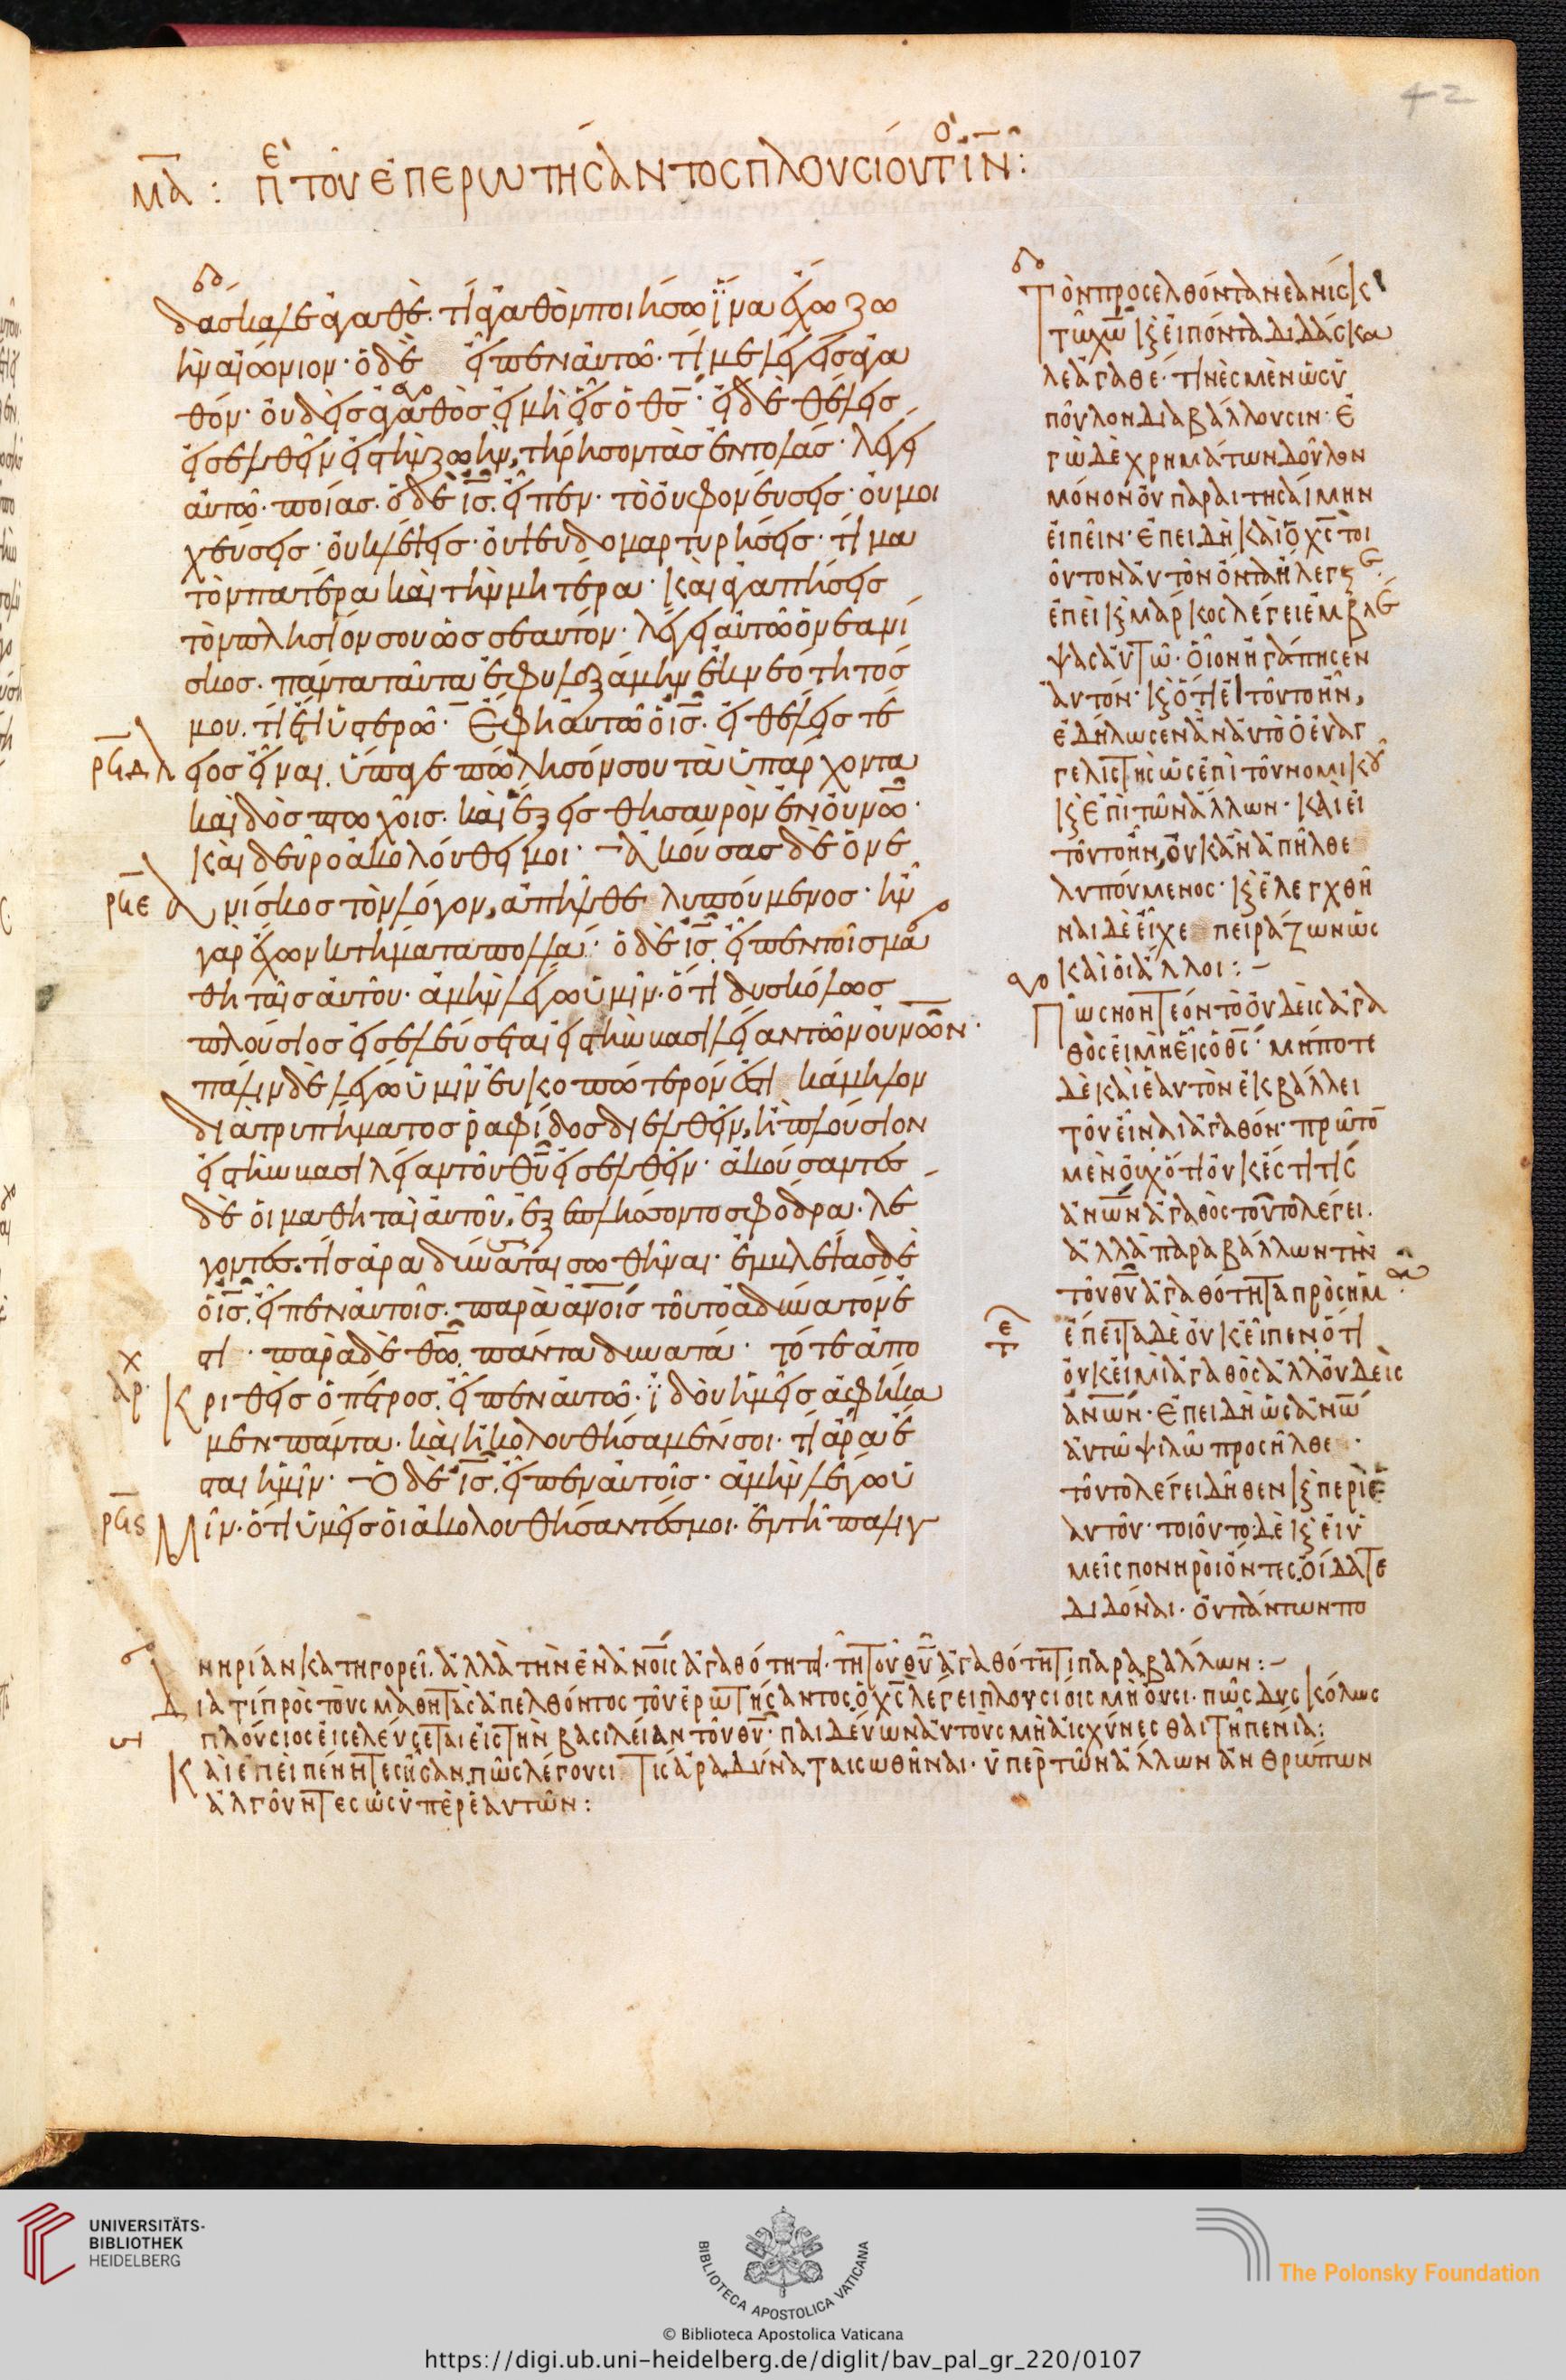 42
μα : περὶ τοῦ ἐπερωτήσαντος πλουσίου τὸν ἰν̅ :
δάσκαλε ἀγαθέ· τί ἀγαθὸν ποιήσω ἵνα ἔχω ζω
ὴν αἰώνιον· ὁ δὲ εἶπεν αὐτῶ· τί με λέγεις ἀγα
θόν· οὐδεὶς ἀγαθὸς εἰ μὴ εἷς ὁ θς̅· εἰ δὲ θέλεις
εἰσελθεῖν εἰς τὴν ζωὴν, τήρησον τὰς ἐντολάς· λέγει
αὐτῶ· ποίας· ὁ δὲ ις̅ εἶπεν· τὸ οὐ φονεύσεις· οὐ μοι
χεύσεις· οὐ κλέψεις· οὐ ψευδομαρτυρήσεις· τίμα
τὸν πατέρα καὶ τὴν μητέρα· καὶ ἀγαπήσεις
τὸν πλησίον σου ὡς σεαυτόν· λέγει αὐτῶ ὁ νεανί
σκος· πάντα ταῦτα ἐφυλαξάμην ἐκ νεότητός
μου· τί ἔτι ὑστερῶ· ἔφη αὐτῶ ὁ ις̅· εἰ θέλεις τέ
ρϟδ λειος εἶναι, ὕπαγε πώλησόν σου τὰ ὑπάρχοντα
καὶ δὸς πτωχοῖς· καὶ ἕξεις θησαυρὸν ἐν οὐνω̅·
καὶ δεῦρο ἀκολούθει μοι· ἀκούσας δὲ ὁ νε
ρϟε ανίσκος τὸν λόγον, ἀπῆλθε λυπούμενος· ἦν
γὰρ ἔχων κτήματα πολλά· ὁ δὲ ις̅ εἶπεν τοῖς μα
θηταῖς αὐτοῦ· ἀμὴν λέγω ὑμῖν· ὅτι δυσκόλως
πλούσιος εἰσελεύσεται εἰς τὴν βασιλείαν τῶν οὐνῶν·
πάλιν δὲ λέγω ὑμῖν εὐκοπώτερόν ἐστι κάμηλον
διὰ τρυπήματος ῥαφίδος διελθεῖν, ἢ πλούσιον
εἰς τὴν βασιλείαν τοῦ θυ̅ εἰσελθεῖν· ἀκούσαντες
δὲ οἱ μαθηταὶ αὐτοῦ, ἐξεπλήσσοντο σφόδρα· λέ
γοντες· τίς ἄρα δύναται σωθῆναι· ἐμβλέψας δὲ
ὁ ις̅ εἶπεν αὐτοῖς· παρὰ ἀνοις̅ τοῦτο ἀδύνατόν ἐ
στι· παρὰ δὲ θω̅ πάντα δυνατά· τότε ἀπο
αρχ κριθεὶς ὁ πέτρος εἶπεν αὐτῶ· ἰδοὺ ἡμεῖς ἀφήκα
μεν πάντα· καὶ ἠκολουθήσαμέν σοι· τί ἄρα ἔ
σται ἡμῖν· ὁ δὲ ις̅ εἶπεν αὐτοῖς· ἀμὴν λέγω ὑ
ρϟς μῖν· ὅτι ὑμεῖς οἱ ἀκολουθήσαντές μοι· ἐν τῆ παλιγ
Τὸν προσελθόντα νεανίσκ
τῶ χω̅ κ̀ εἰπόντα διδάσκα
λε ἀγαθέ· τινὲς μὲν ὡς ὕ
πουλον διαβάλλουσιν· ἐ
γὼ δὲ χρημάτων δοῦλον
μόνον οὐ παραιτησαίμην
εἰπεῖν· ἐπειδὴ καὶ ὁ χς̅ τοι
οῦτον αὐτὸν ὄντα ἤλεγξε·
ἐπεὶ κ̀ μάρκος λέγει ἐμβλέ
ψας αὐτῶ· οἱονεὶ ἠγάπησεν
αὐτόν· κ̀ ὅτι εἰ τοῦτο ἦν,
ἐδήλωσεν ἂν αὐτὸ ὁ εὐαγ
γελιστὴς ὡς ἐπὶ τοῦ νομικοῦ
κ̀ ἐπὶ τῶν ἄλλων· καὶ εἰ
τοῦτο ἦν, οὐκ ἂν ἀπῆλθε
λυπούμενος· κ̀ ἐλεγχθῆ
ναι δὲ εἶχε πειράζων ὡς
καὶ οἱ ἄλλοι :-
Πῶς νοητέον τὸ οὐδεὶς ἀγα
θὸς εἰ μὴ εἷς ὁ θς̅· μήποτε
δὲ καὶ ἑαυτὸν ἐκβάλλει
τοῦ εἶναι ἀγαθόν· πρῶτο
μὲν οὐχ ὅτι οὐκ ἔστι τις
ἀνων̅ ἀγαθὸς τοῦτο λέγει·
ἀλλὰ παραβάλλων τὴν
τοῦ θυ̅ ἀγαθότητα πρὸς ἡμᾶς·
ἔπειτα δὲ οὐκ εἶπεν ὅτι
οὐκ εἰμὶ ἀγαθὸς ἀλλ' οὐδεὶς
ἀνων̅· ἐπειδὴ ὡς ἀνω̅
αὐτῶ ψιλῶ προσῆλθε·
τοῦτο λέγει δῆθεν κ̀ περὶ ἑ
αυτοῦ· τοιοῦτο δὲ κ̀ εἰ ὑ
μεῖς πονηροὶ ὄντες οἴδατε
διδόναι· οὐ πάντων πο
νηρίαν κατηγορεῖ· ἀλλὰ τὴν ἐν ἀνοις̅ ἀγαθότητι· τῆ τοῦ θυ̅ ἀγαθότητι παραβάλλων :-
Διατί πρὸς τοὺς μαθητὰς ἀπελθόντος τοῦ ἐρωτήσαντος, ὁ χς̅ λέγει πλουσίοις μὴ οὖσι· πῶς δυσκόλως
πλούσιος εἰσελεύσεται εἰς τὴν βασιλείαν τοῦ θυ̅· παιδεύων αὐτοὺς μὴ αἰσχύνεσθαι τῆ πενία :
Καὶ ἐπεὶ πένητες ἦσαν, πῶς λέγουσι τίς ἄρα δύναται σωθῆναι· ὑπὲρ τῶν ἄλλων ἀνθρώπων
ἀλγοῦντες ὡς ὑπὲρ ἑαυτῶν :
UNIVERSITÄTS-
BIBLIOTHEK
HEIDELBERG
BIBLIOTECA APOSTOLICA VATICANA
The Polonsky Foundation
© Biblioteca Apostolica Vaticana
https://digi.ub.uni-heidelberg.de/diglit/bav_pal_gr_220/0107